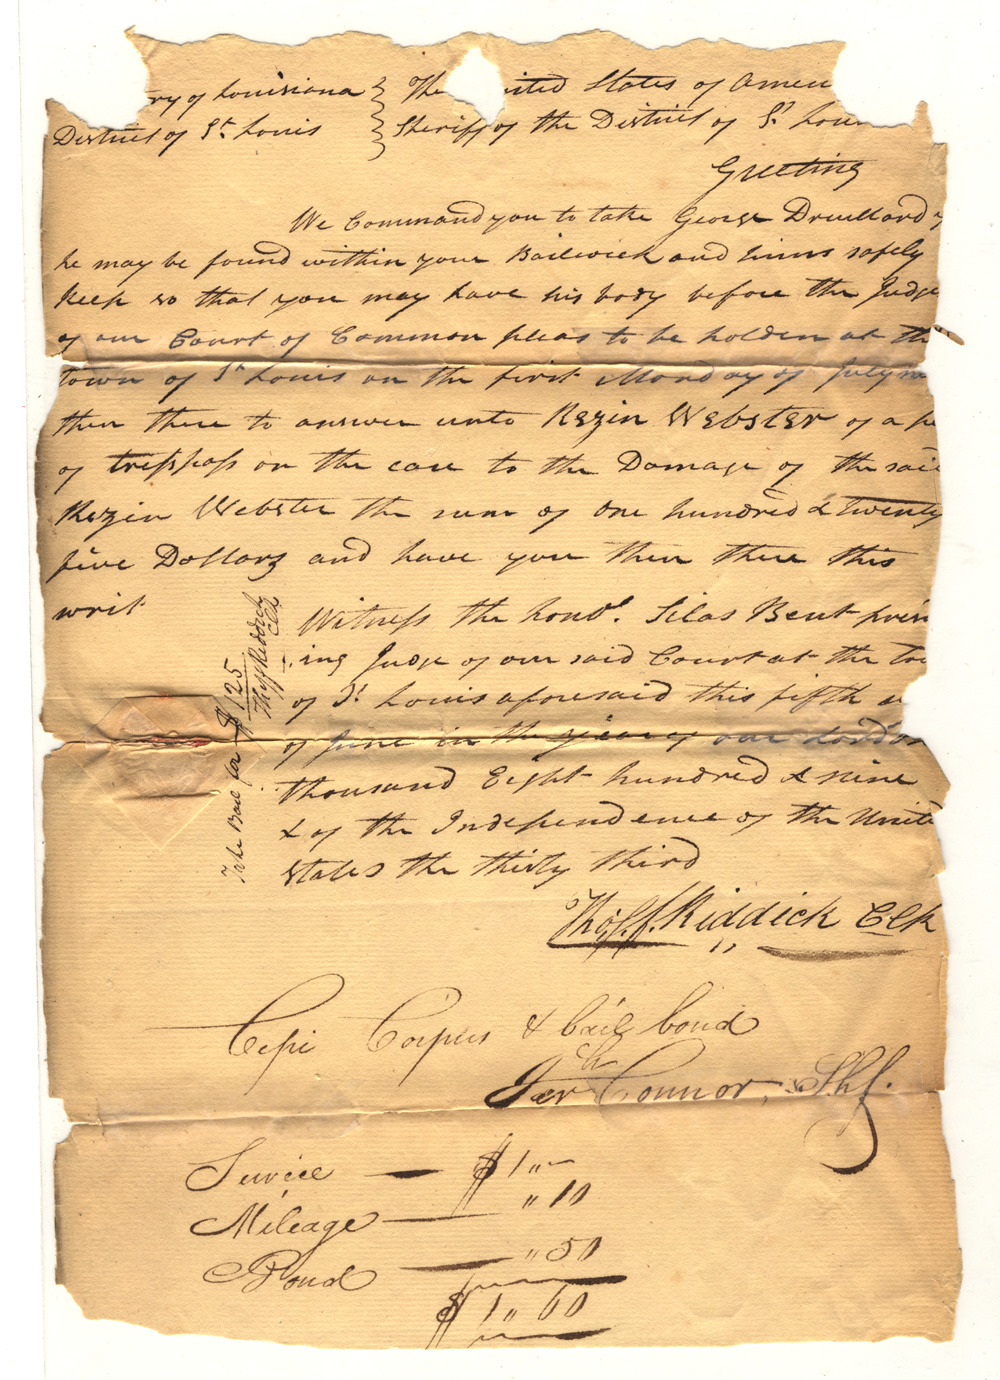 ry of Louisiana } The ited States of Amer
District of St Louis } Sheriff of the District of St Lou
Greeting
We Command you to take George Druillard
he may be found within your Bailiwick and him safely
Keep so that you may have his body before the Judge
of our Court of Common pleas to be holden at th
town of St Louis on the first Monday of July
then there to answer unto Rezin Webster of a
of tresspass on the case to the Damage of the said
Rezin Webster the sum of one hundred & twenty
five Dollars and have you then there this
writ
Witness the honbl. Silas Bent presi
ing Judge of our said Court at the to
of St Louis aforesaid this fifth
of June in the year of our Lord on
thousand Eight hundred & nine
& of the Independence of the Unite
States the thirty third
Thos. F. Riddick Clk
Take Bail for $125
Thos F Riddick
Clk
Cepi Corpus & bail bond
Jerh Connor, Shf.
Service — $1 "–
Mileage — " 10
Bond — " 50
$ 1 " 60